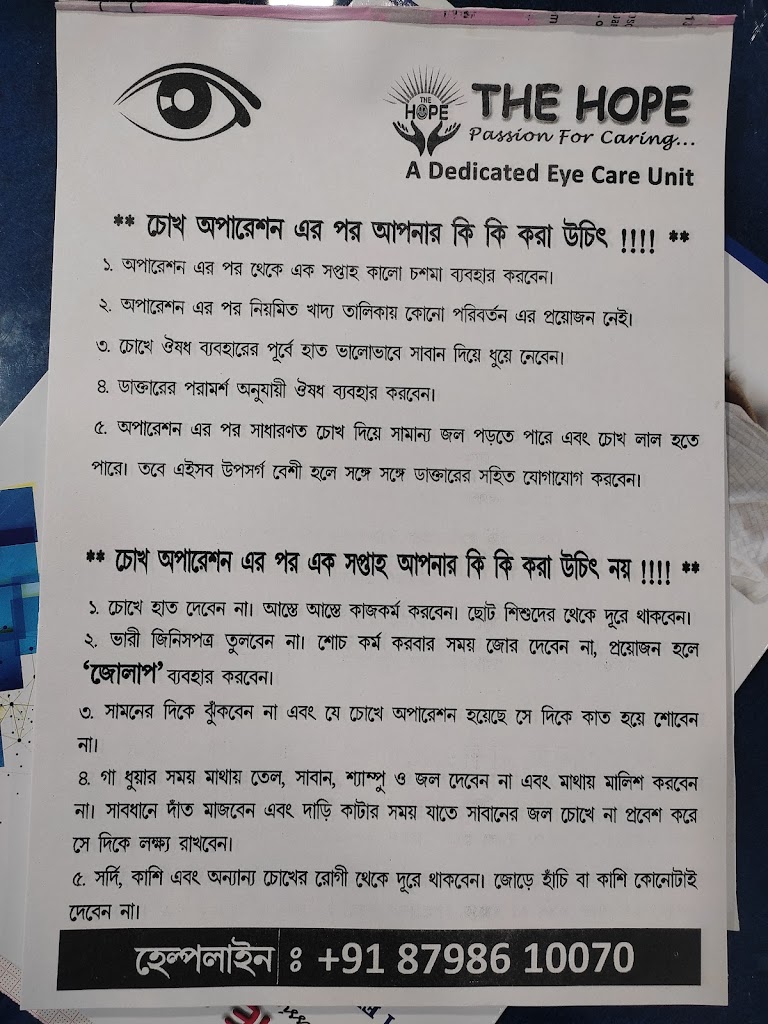 THE
HOPE
THE HOPE
Passion For Caring...
A Dedicated Eye Care Unit
** চোখ অপারেশন এর পর আপনার কি কি করা উচিৎ !!!! **
১. অপারেশন এর পর থেকে এক সপ্তাহ কালো চশমা ব্যবহার করবেন।
২. অপারেশন এর পর নিয়মিত খাদ্য তালিকায় কোনো পরিবর্তন এর প্রয়োজন নেই।
৩. চোখে ঔষধ ব্যবহারের পূর্বে হাত ভালোভাবে সাবান দিয়ে ধুয়ে নেবেন।
৪. ডাক্তারের পরামর্শ অনুযায়ী ঔষধ ব্যবহার করবেন।
৫. অপারেশন এর পর সাধারণত চোখ দিয়ে সামান্য জল পড়তে পারে এবং চোখ লাল হতে
পারে। তবে এইসব উপসর্গ বেশী হলে সঙ্গে সঙ্গে ডাক্তারের সহিত যোগাযোগ করবেন।
** চোখ অপারেশন এর পর এক সপ্তাহ আপনার কি কি করা উচিৎ নয় !!!! **
১. চোখে হাত দেবেন না। আস্তে আস্তে কাজকর্ম করবেন। ছোট শিশুদের থেকে দূরে থাকবেন।
২. ভারী জিনিসপত্র তুলবেন না। শোচ কর্ম করবার সময় জোর দেবেন না, প্রয়োজন হলে
‘জোলাপ’ ব্যবহার করবেন।
৩. সামনের দিকে ঝুঁকবেন না এবং যে চোখে অপারেশন হয়েছে সে দিকে কাত হয়ে শোবেন
না।
৪. গা ধুয়ার সময় মাথায় তেল, সাবান, শ্যাম্পু ও জল দেবেন না এবং মাথায় মালিশ করবেন
না। সাবধানে দাঁত মাজবেন এবং দাড়ি কাটার সময় যাতে সাবানের জল চোখে না প্রবেশ করে
সে দিকে লক্ষ্য রাখবেন।
৫. সর্দি, কাশি এবং অন্যান্য চোখের রোগী থেকে দূরে থাকবেন। জোড়ে হাঁচি বা কাশি কোনোটাই
দেবেন না।
হেল্পলাইন ঃ +91 87986 10070